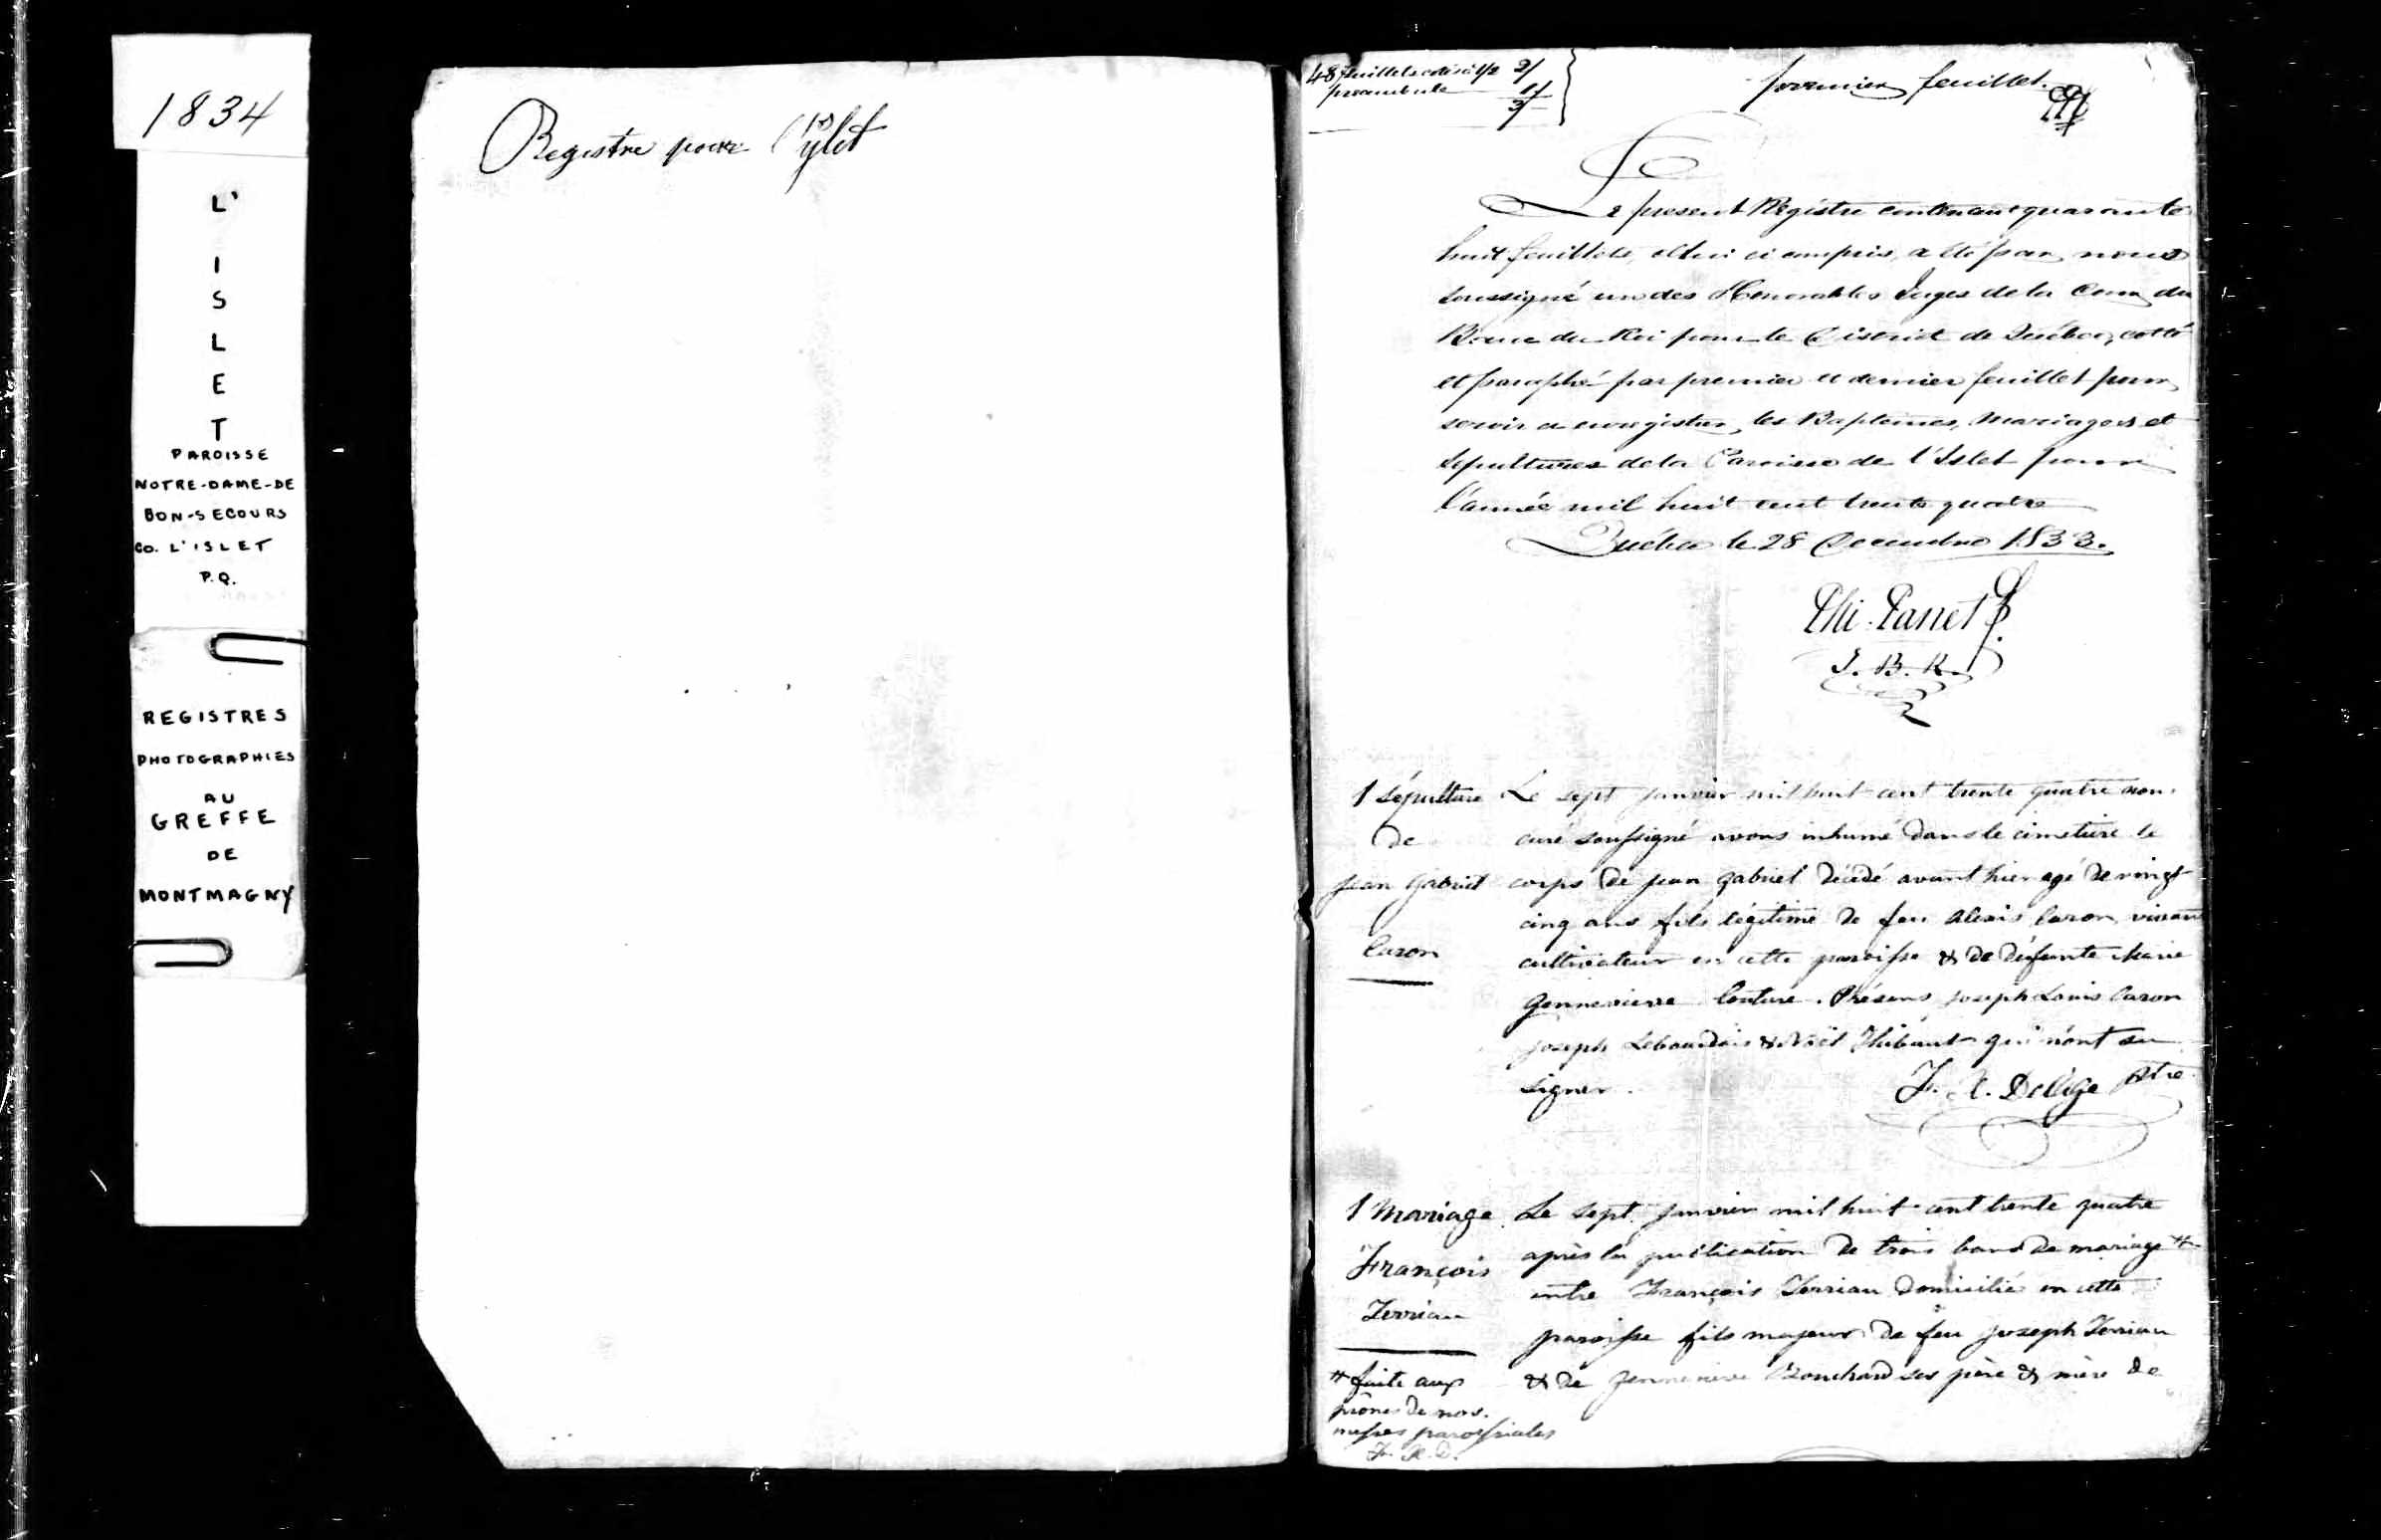 1834
L'
I
S
L
E
T
PAROISSE
NOTRE-DAME-DE
BON-SECOURS
CO. L'ISLET
P.Q.
REGISTRES
PHOTOGRAPHIES
AU
GREFFE
DE
MONTMAGNY
Registre pour l'yslet
48 feuillets cotés à 1/2 2/
préambule 1/
3/
premier feuillet.
Le present Régistre contenant quarante
huit feuillets, celui ci compris, a été par nous
soussigné un des Honorables Juges de la Cour du
Banc du Roi pour le District de Québec, cotté
et paraphé par premier et dernier feuillet pour
servir a enregistrer les Baptêmes, Mariages et
Sepultures de la Paroisse de l'Islet pour
l'année mil huit cent trente quatre
Québec le 28 Decembre 1833.
Phi. Panet
J. B. R.
1 Sépulture
de
jean gabriel
Caron
Le sept janvier mil huit cent trente quatre nous
curé soussigné avons inhumé dans le cimetière le
corps de jean gabriel décédé avant hier agé de vingt
cinq ans fils légitime de feu Alexis Caron, vivant
cultivateur en cette paroisse & de défunte Marie
gennevieve Couture. Présens joseph Louis Caron
joseph Lebourdais & Noël Thibaut qui n'ont su
signer. F. X. Delâge Ptre
1 Mariage
François
Terriau
# faite aux
prônes de nos
messes paroissiales
F. X. D.
Le sept janvier mil huit cent trente quatre
après la publication de trois bans de mariage #
entre François Terriau domicilié en cette
paroisse fils majeur de feu joseph Terriau
& de gennevieve Bouchard ses père & mère de